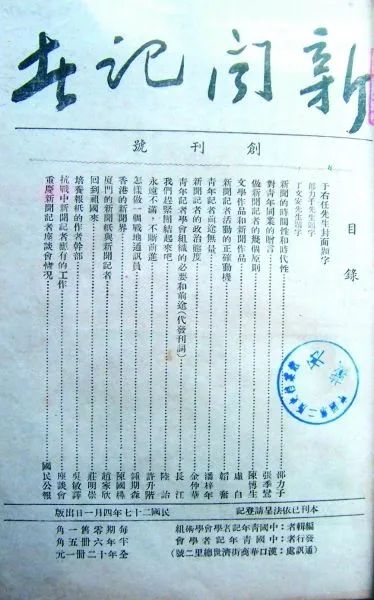 新聞記者
創刊號
目錄
于右任先生封面題字
邵力子先生題字
丁文安先生題字
新聞的時間性和時代性………邵力子
對青年同業的贈言………張季鸞
做新聞記者的幾個原則………陳博生
文學作品和新聞作品………虛白
新聞記者活動的正確動機………韜奮
青年記者前途無量………潘梓年
新聞記者的政治態度………金仲華
青年記者學會組織的必要和前途(代發刊詞)………長江
我們趕緊團結起來吧………陸詒
永遠不滿,不斷前進………許升階
怎樣做一個戰地通訊員………鍾期森
香港的新聞界………陳國
廈門的新聞紙與新聞記者………趙家欣
回到祖國來………莊明崇
培養報紙的作者幹部………吳敏譯
抗戰中新聞記者應有的工作………座談會
重慶新聞記者座談會情況………國民公報
本刊已依法呈請登記
民國二十七年四月一日出版
編輯者:中國青年記者學會學術組
發行者:中國青年記者學會
通訊處:漢口華商街濟世總里二號
每期零售一角
半年六冊五角
全年十二冊一元